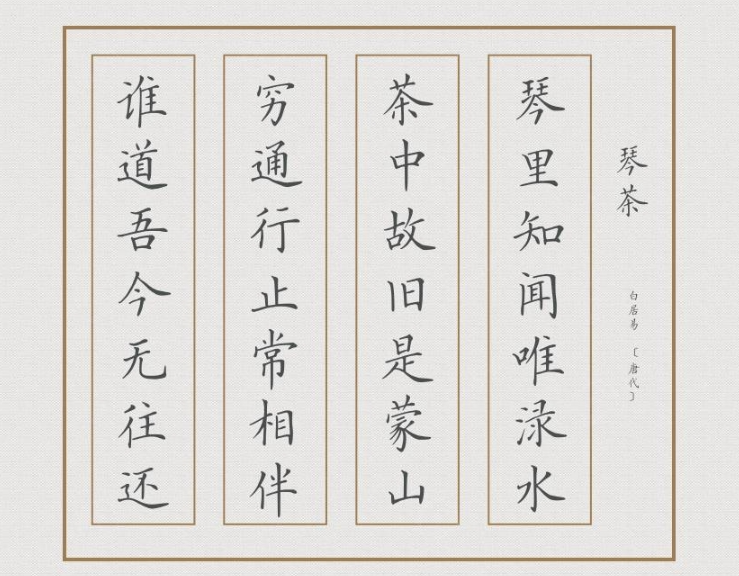 琴茶
白居易 〔唐代〕
琴里知闻唯渌水
茶中故旧是蒙山
穷通行止常相伴
谁道吾今无往还